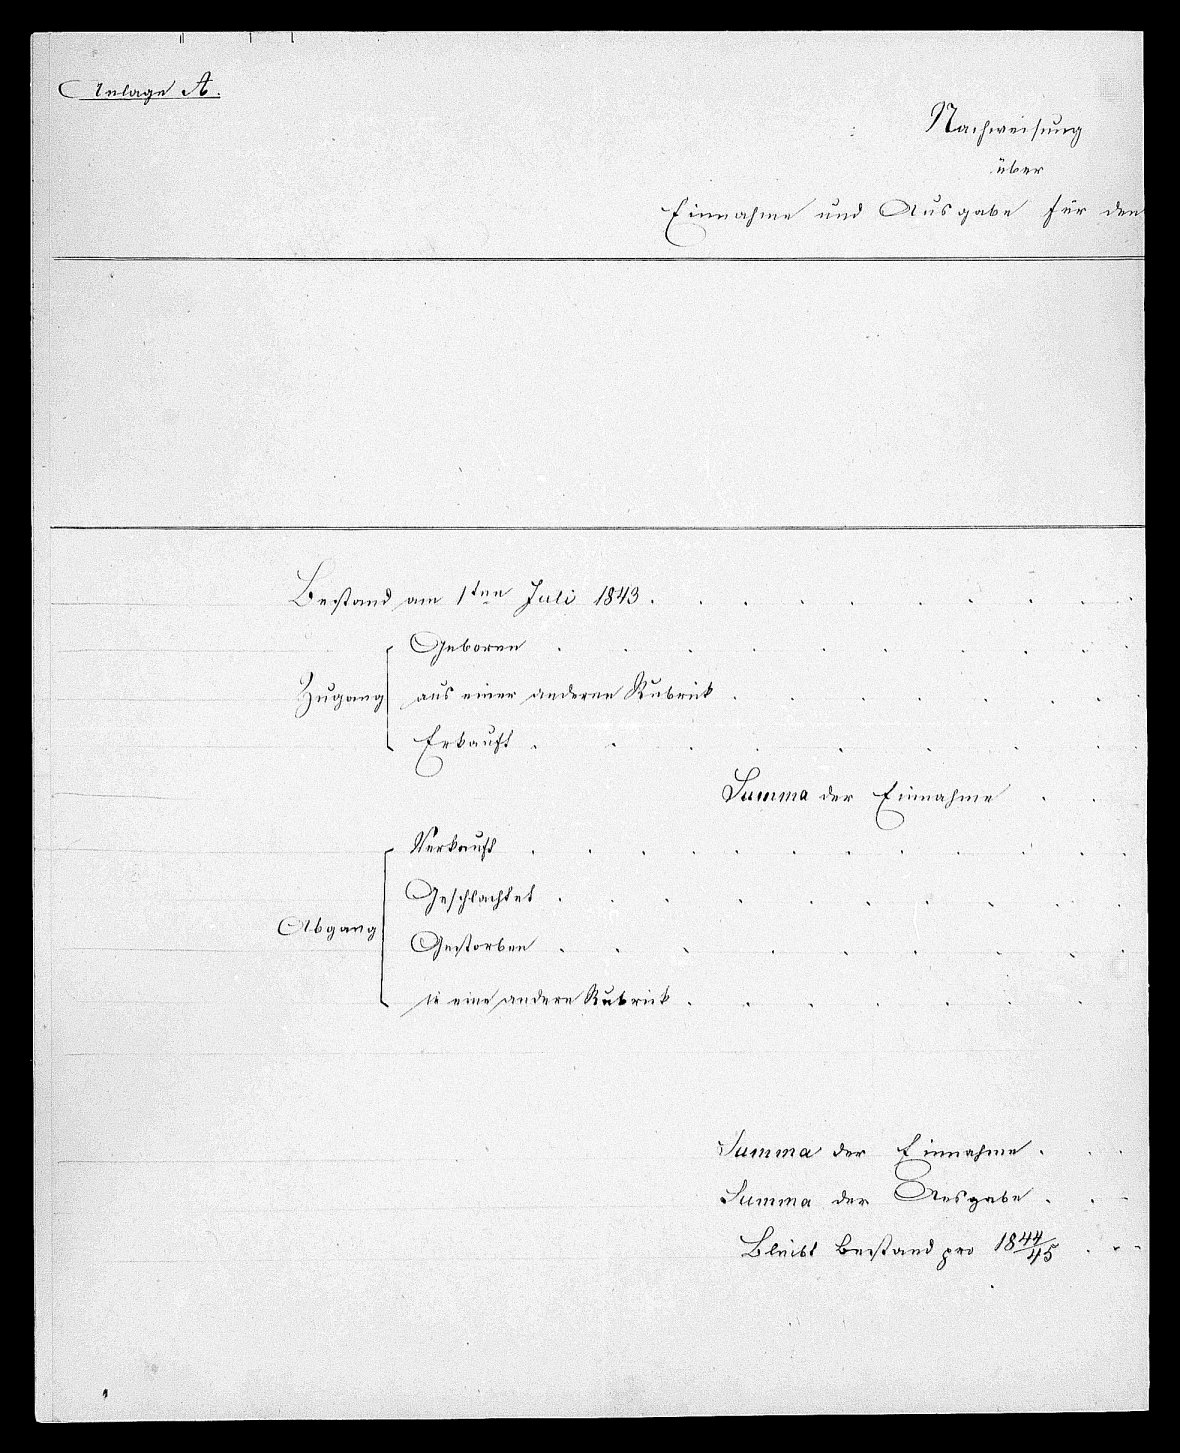 Anlage A.
Nachweisung
über
Einnahme und Ausgabe für den
Bestand am 1ten Juli 1843 . . . . . . . . . .
Geboren . . . . . . . . . .
Zugang aus einer anderen Rubrick . . . . . . .
Erkauft . . . . . . . . .
Summa der Einnahme . .
Verkauft . . . . . . . . . . . .
Geschlachtet . . . . . . . . . .
Abgang
Gestorben . . . . . . . . .
in eine andere Rubrick . . . . . . .
Summa der Einnahme . . .
Summa der Ausgabe . . .
Bleibt Bestand pro 1844/45 . . .